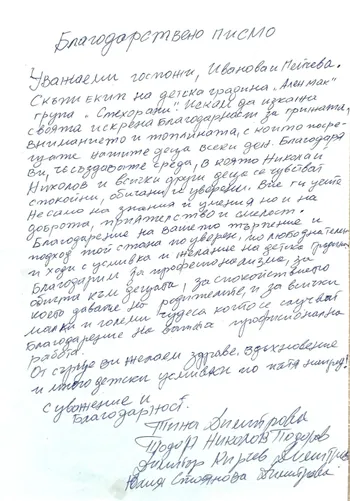 Благодарствено писмо
Уважаеми госпожи, Иванова и Пейчева.
Скъпи екип на детска градина „Ален мак"
група „Смехорани". Искам да изкажа
своята искрена благодарност за грижата,
вниманието и топлината, с които посре-
щате нашите деца всеки ден. Благодаря
ви, че създавате среда, в която Николай
Николов и всички други деца се чувстват
спокойни, обичани и уверени. Вие ги учите
не само на знания и умения но и на
доброта, приятелство и смелост.
Благодарение на вашето търпение и
подход той стана по уверен, по любознателен
и ходи с усмивка и желание на детска градина
Благодарим за професионализма, за
обичта към децата, за спокойствието
което давате на родителите, и за всички
малки и големи чудеса които се случват
благодарение на вашта професионална
работа.
От сърце ви желаем здраве. вдохновение
и много детски усмивки по пътя напред!
С уважение и
Благодарност.
Тина Димитрова
Тодор Николов Тодоров
Димитър Киров Димитров
Юлия Стоянова Димитрова.